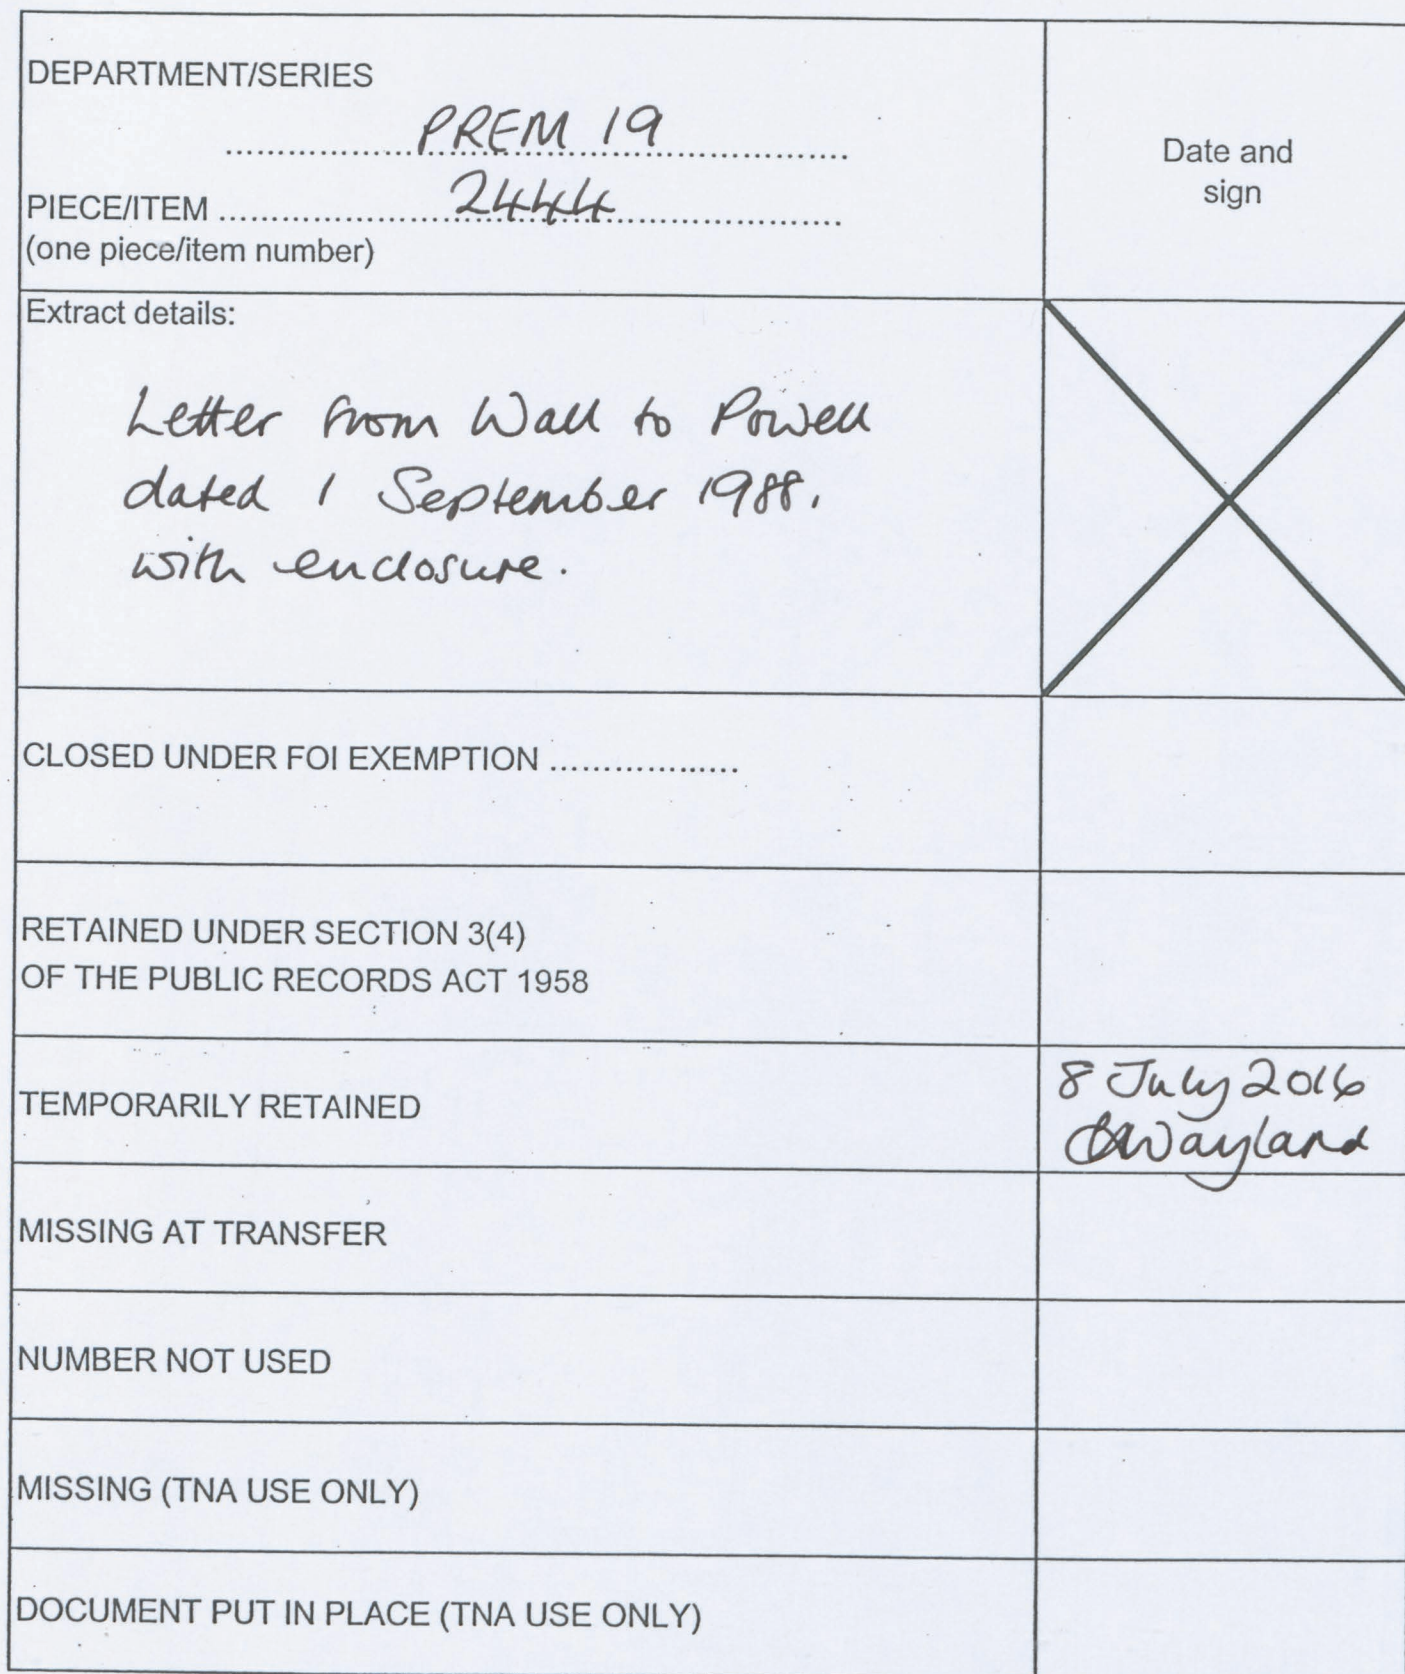 DEPARTMENT/SERIES
PREM 19
Date and
sign
PIECE/ITEM 2444
(one piece/item number)
Extract details:
Letter from Wall to Powell
dated 1 September 1988.
with enclosure.
CLOSED UNDER FOI EXEMPTION ..................
RETAINED UNDER SECTION 3(4)
OF THE PUBLIC RECORDS ACT 1958
TEMPORARILY RETAINED
8 July 2016
Wayland
MISSING AT TRANSFER
NUMBER NOT USED
MISSING (TNA USE ONLY)
DOCUMENT PUT IN PLACE (TNA USE ONLY)